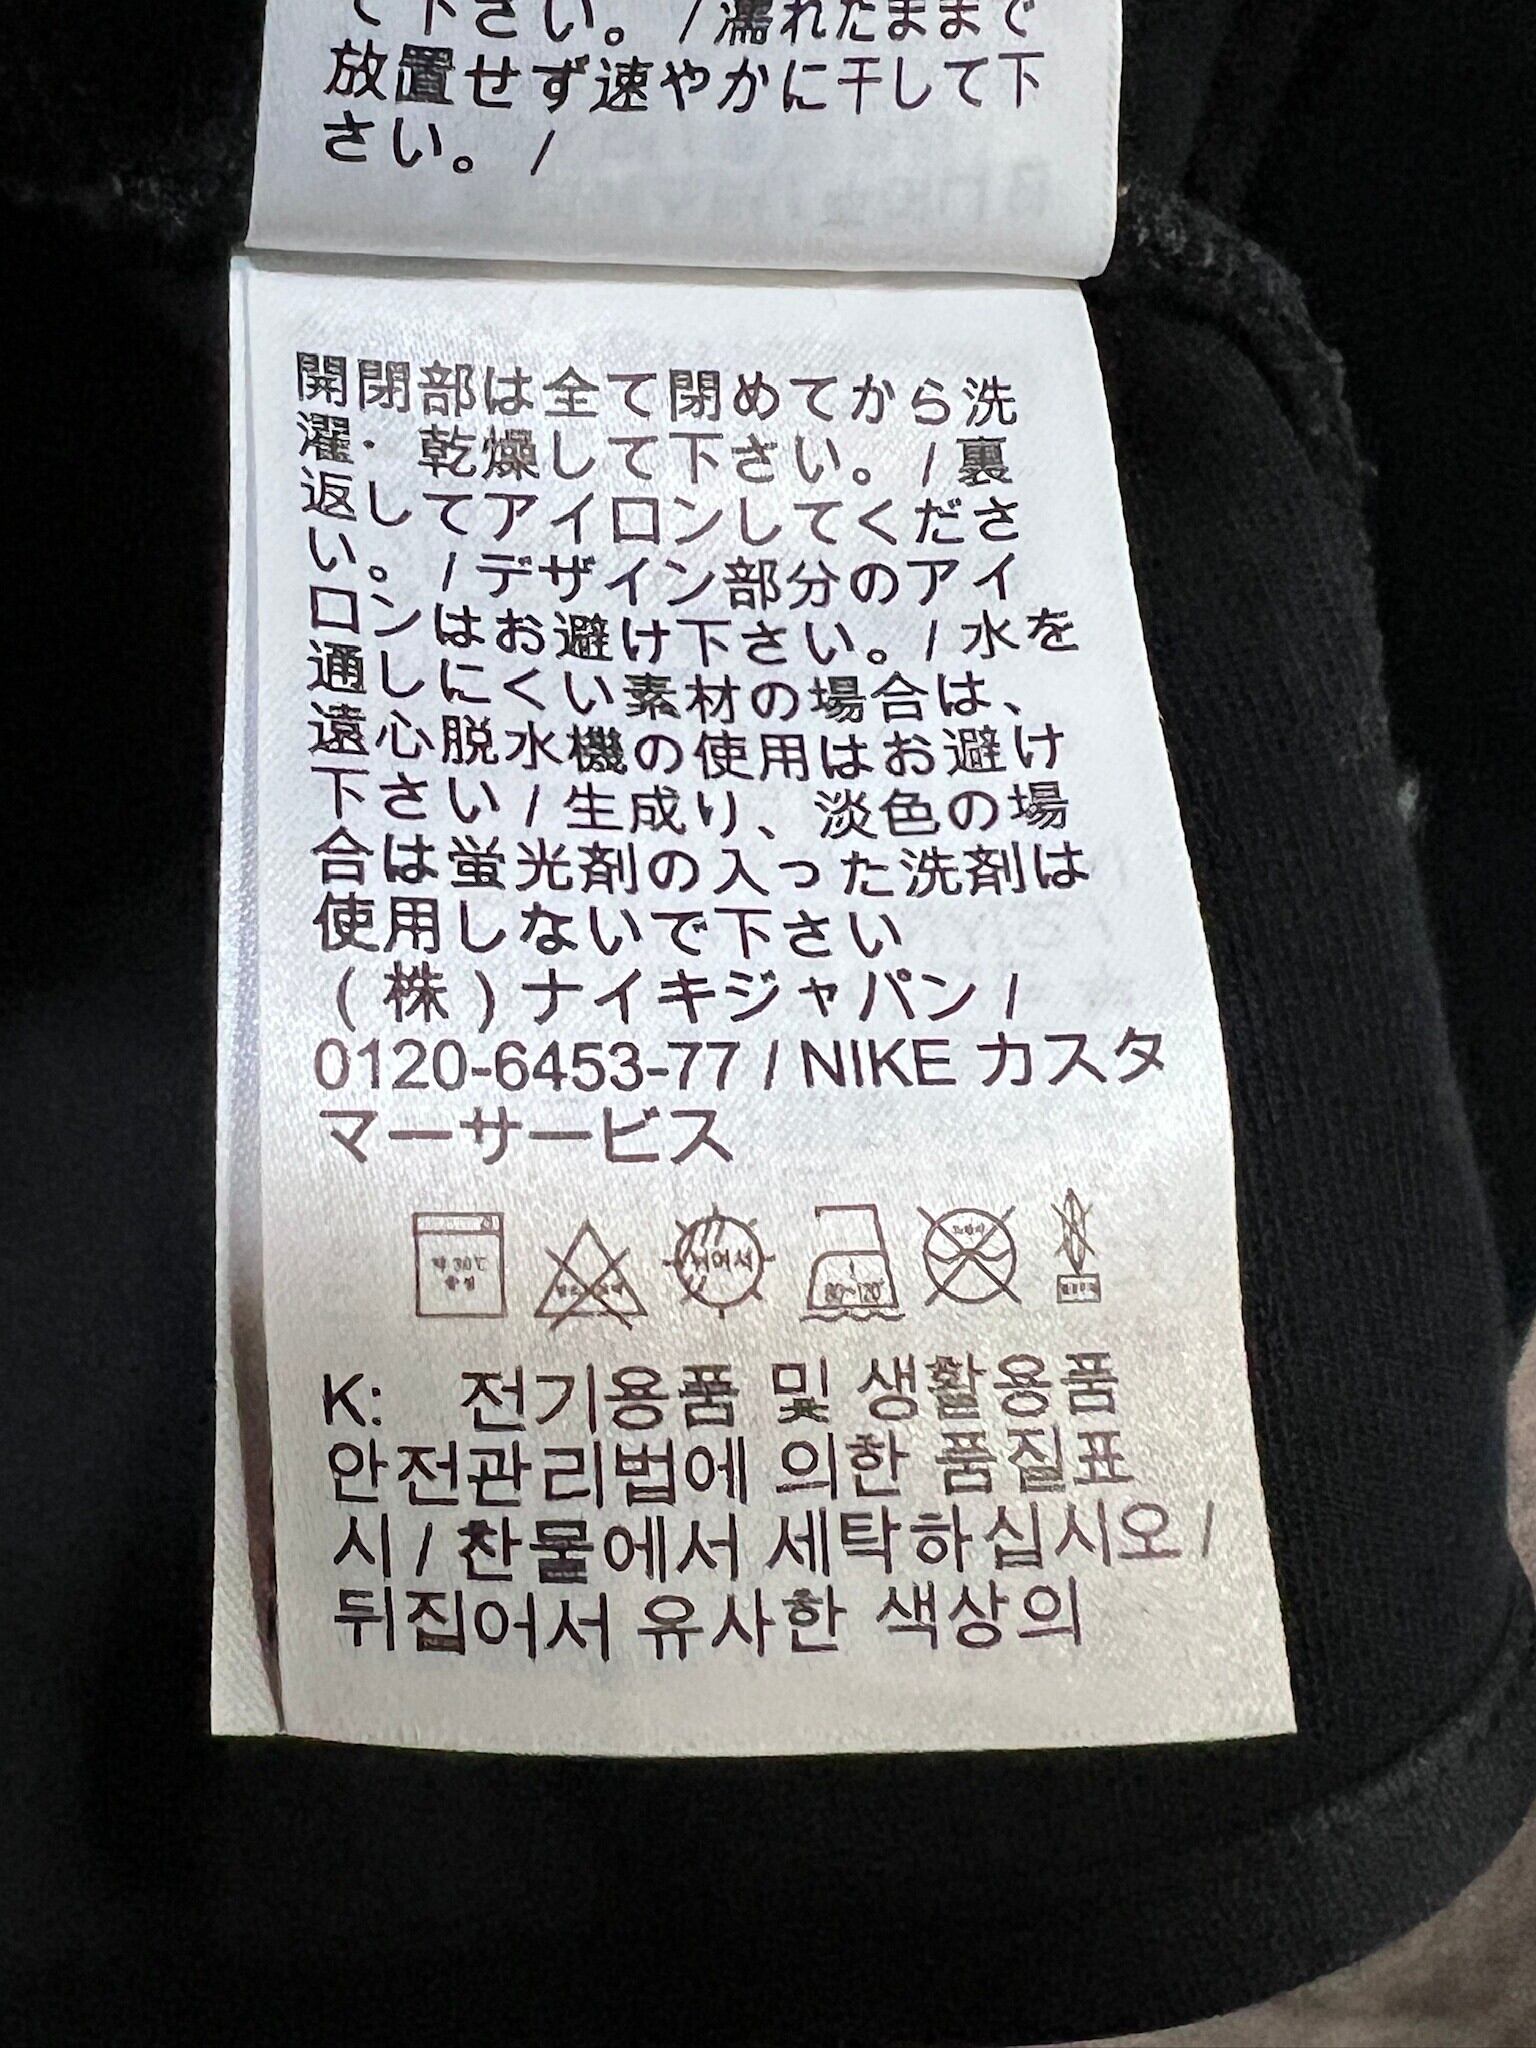 て下さい。/濡れたままで
放置せず速やかに干して下
さい。/
開閉部は全て閉めてから洗
濯・乾燥して下さい。/裏
返してアイロンしてくださ
い。/デザイン部分のアイ
ロンはお避け下さい。/水を
通しにくい素材の場合は、
遠心脱水機の使用はお避け
下さい/生成り、淡色の場
合は蛍光剤の入った洗剤は
使用しないで下さい
(株)ナイキジャパン/
0120-6453-77/NIKE カスタ
マーサービス
약 30℃
중성
뉘어서
80~120℃
드라이
K: 전기용품 및 생활용품
안전관리법에 의한 품질표
시/찬물에서 세탁하십시오/
뒤집어서 유사한 색상의